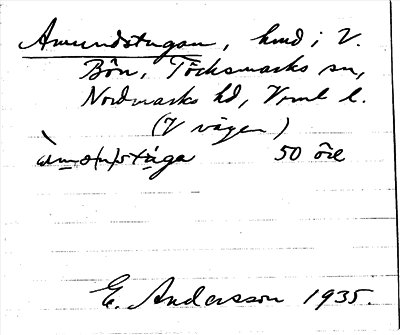 Amundstugan, hmd i V.
Bön, Töcksmarks sn,
Nordmarks hd, Vrml l.
(V vägen)
50 öre
E. Andersson 1935.